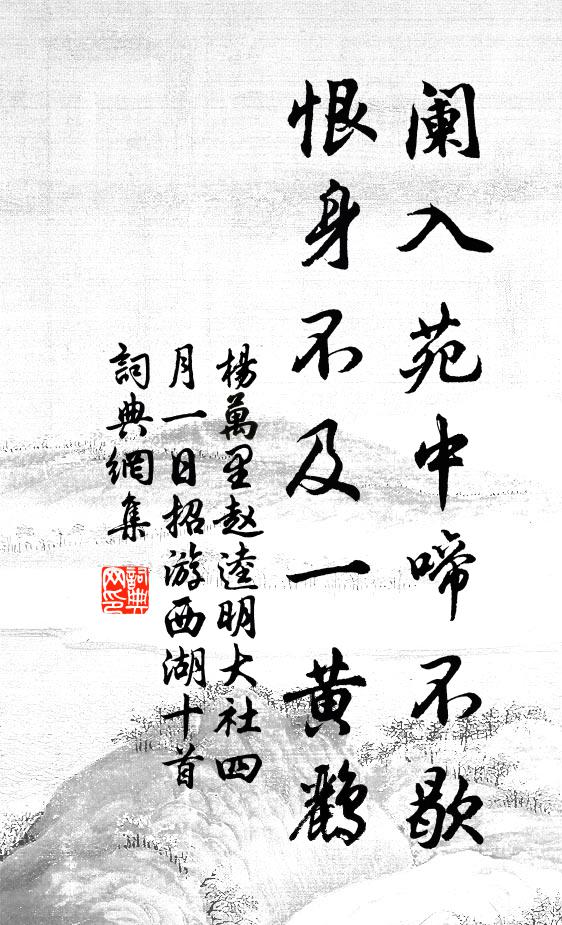 阑入苑中啼不歇
恨身不及一黄鸝
楊萬里赵逵明大社四
月一日招游西湖十首
詞典網集
詞典
网印